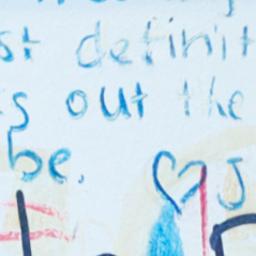 st definit
s out the
be. ♡ J